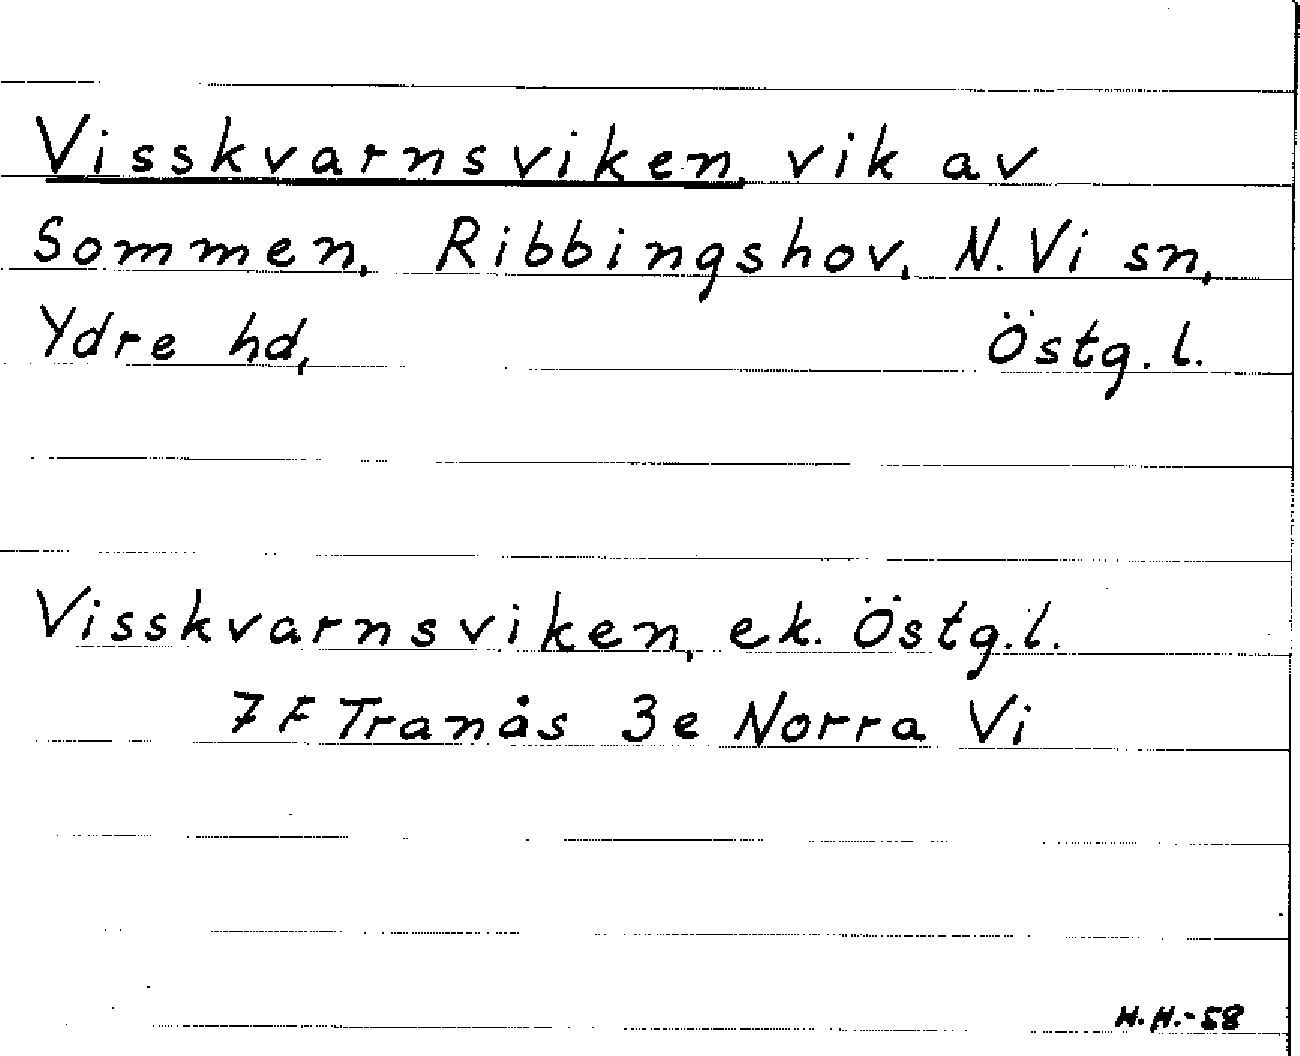 Visskvarnsviken, vik av
Sommen, Ribbingshov, N. Vi sn,
Ydre hd, Östg. l.
Visskvarnsviken, ek. Östg. l.
7 F Tranås 3e Norra Vi
H.H.-58